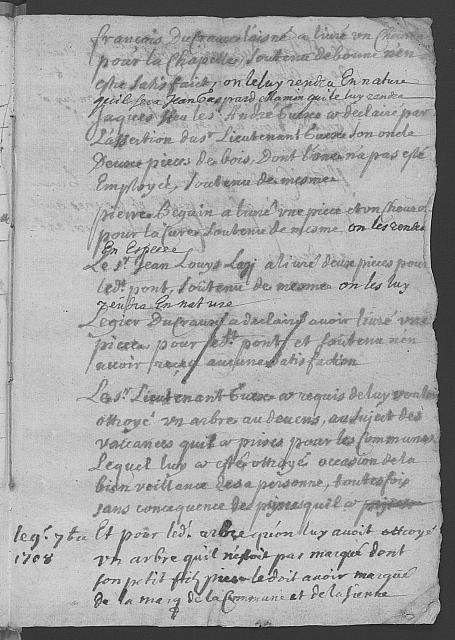 françois Dufraux laisné a livré un Cheuron
pour la Chapelle, Soutenu de bonne n'en
estre satisfait, on le luy rendra En nature
Jaques feu le Sr. André Guex a declairé par
L'assertion du sr. Lieutenant Guex son oncle
Deux pieces de bois, Dont l'une n'a pas esté
Employé, Soutenu de mesme
pierre Beguin a liuré vne piece et vn Cheuron
pour la Cure, Soutenu de mesme on les rendra
En Espece
Le Sr. Jean Louys a liuré deux pieces pour
led. pont, Soutenu de mesme on les luy
rendra En nature
Legier Dufraux a declairé avoir liuré vne
piece pour led. pont et Soutenu n'en
avoir receu aucune Satisfaction
Le Sr. Lieutenant Guex a requis de luy vouloir
ottroyé vn arbre au devens, au Sujet des
vaccances quil a prises pour les Communes
Lequel luy a esté ottroyé occasion de la
bien veillance de sa personne, toutesfois
sans consequence des quil a
le 9e. 7bre Et pour led. arbre qu'on luy avoit ottroyé
1708 vn arbre qu'il n'estoit pas marqué dont
son petit filz pierre le doit avoir marqué
de la marq de la Commune et de la sienne